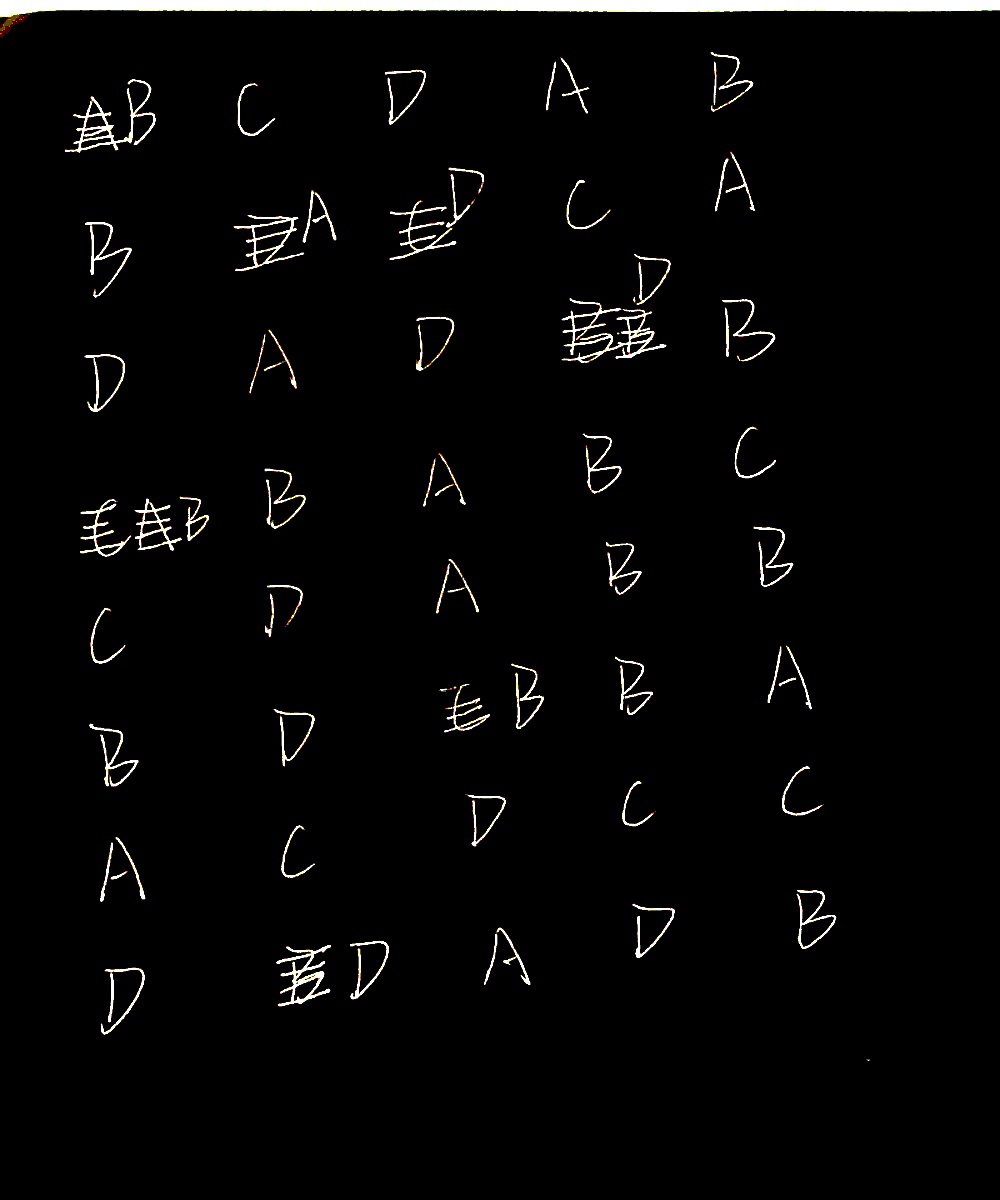 B C D A B
B A D C A
D A D D B
B B A B C
C D A B B
B D B B A
A C D C C
D D A D B